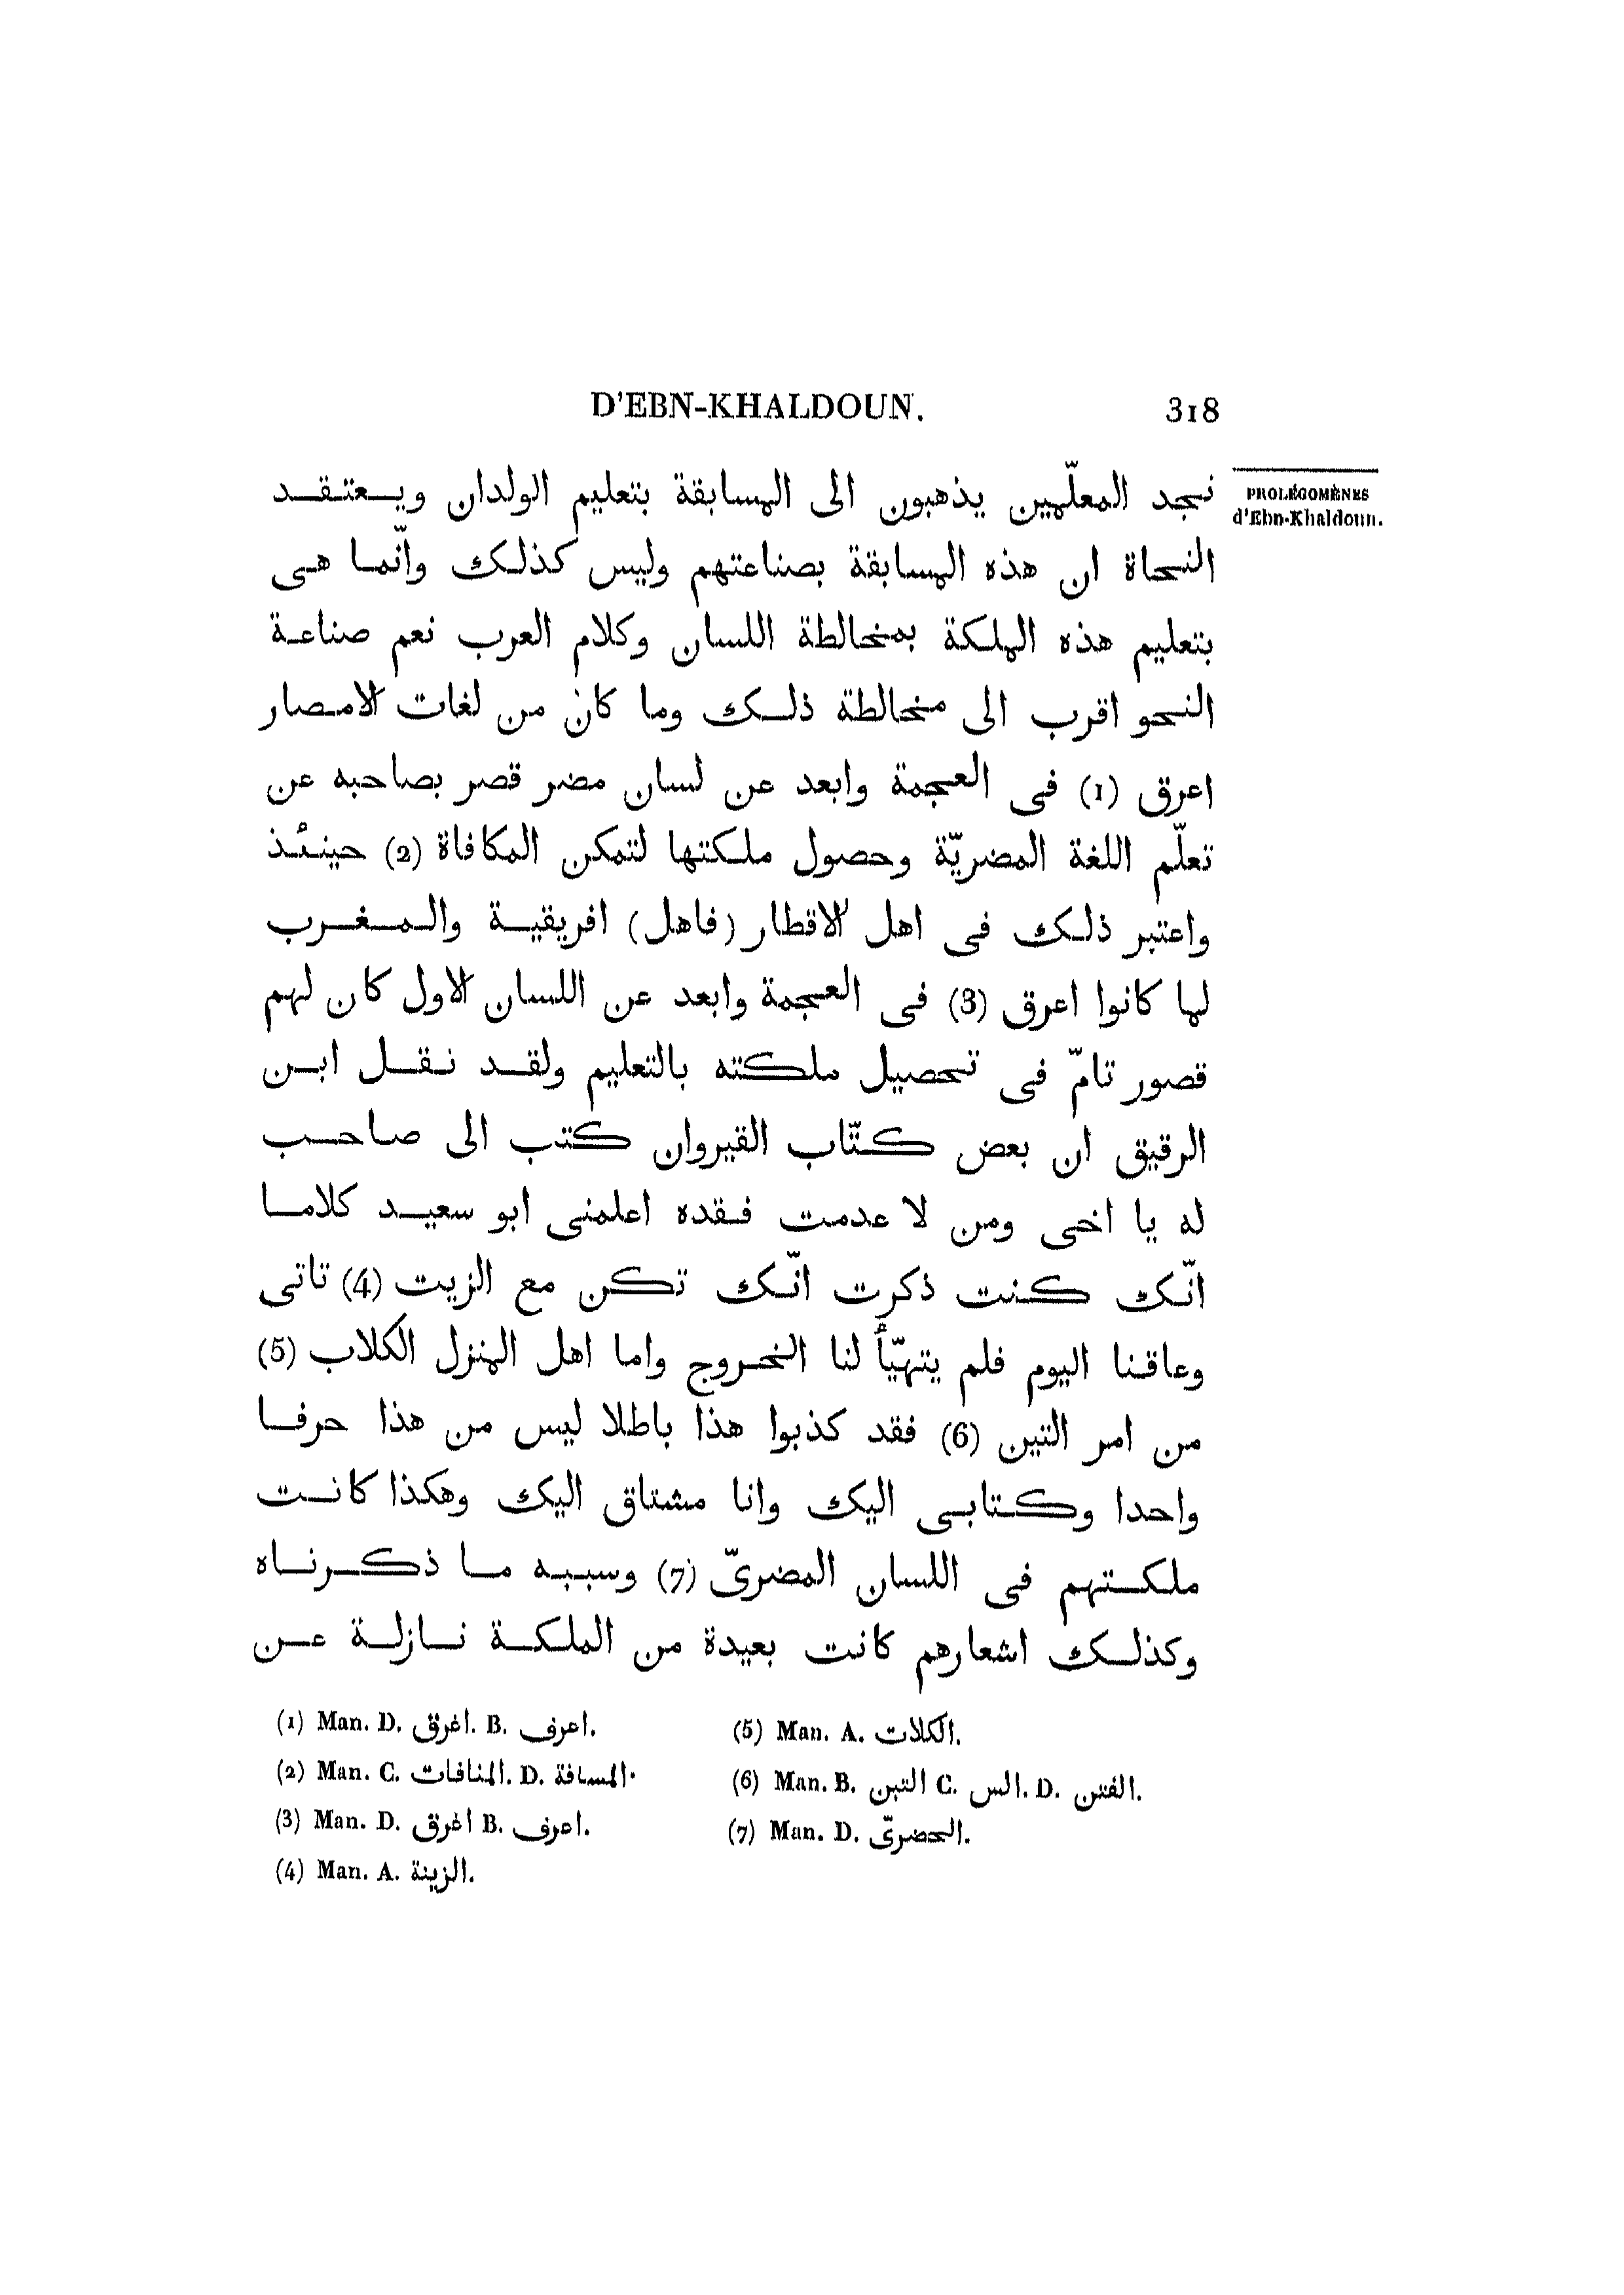 D'EBN-KHALDOUN. 318
PROLÉGOMÈNES
d'Ebn-Khaldoun.
نجد المعلّمين يذهبون الى المسابقة بتعليم الولدان ويعتقد
النحاة ان هذه المسابقة بصناعتهم وليس كذلك وانّما هى
بتعليم هذه الملكة بمخالطة اللسان وكلام العرب نعم صناعة
النحو اقرب الى مخالطة ذلك وما كان من لغات الامصار
اعرق (1) فى العجمة وابعد عن لسان مضر قصر بصاحبه عن
تعلّم اللغة المضريّة وحصول ملكتها لتمكن المكافاة (2) حينئذ
واعتبر ذلك فى اهل الاقطار (فاهل) افريقية والمغرب
لما كانوا اعرق (3) فى العجمة وابعد عن اللسان الاول كان لهم
قصور تامّ فى تحصيل ملكته بالتعليم ولقد نقل ابن
الرقيق ان بعض كتّاب القيروان كتب الى صاحب
له يا اخى ومن لا عدمت فقده اعلمنى ابو سعيد كلاما
انّك كنت ذكرت انّك تكن مع الزيت (4) تاتى
وعاقنا اليوم فلم يتهيّأ لنا الخروج واما اهل المنزل الكلاب (5)
من امر التين (6) فقد كذبوا هذا باطلا ليس من هذا حرفا
واحدا وكتابى اليك وانا مشتاق اليك وهكذا كانت
ملكتهم فى اللسان المضرىّ (7) وسببه ما ذكرناه
وكذلك اشعارهم كانت بعيدة من الملكة نازلة عن
(1) Man. D. اغرق. B. اعرف.
(2) Man. C. المنافات. D. المسافة.
(3) Man. D. اغرق B. اعرف.
(4) Man. A. الزينة.
(5) Man. A. الكلات.
(6) Man. B. التبن C. الس. D. الفتن.
(7) Man. D. الحضرىّ.